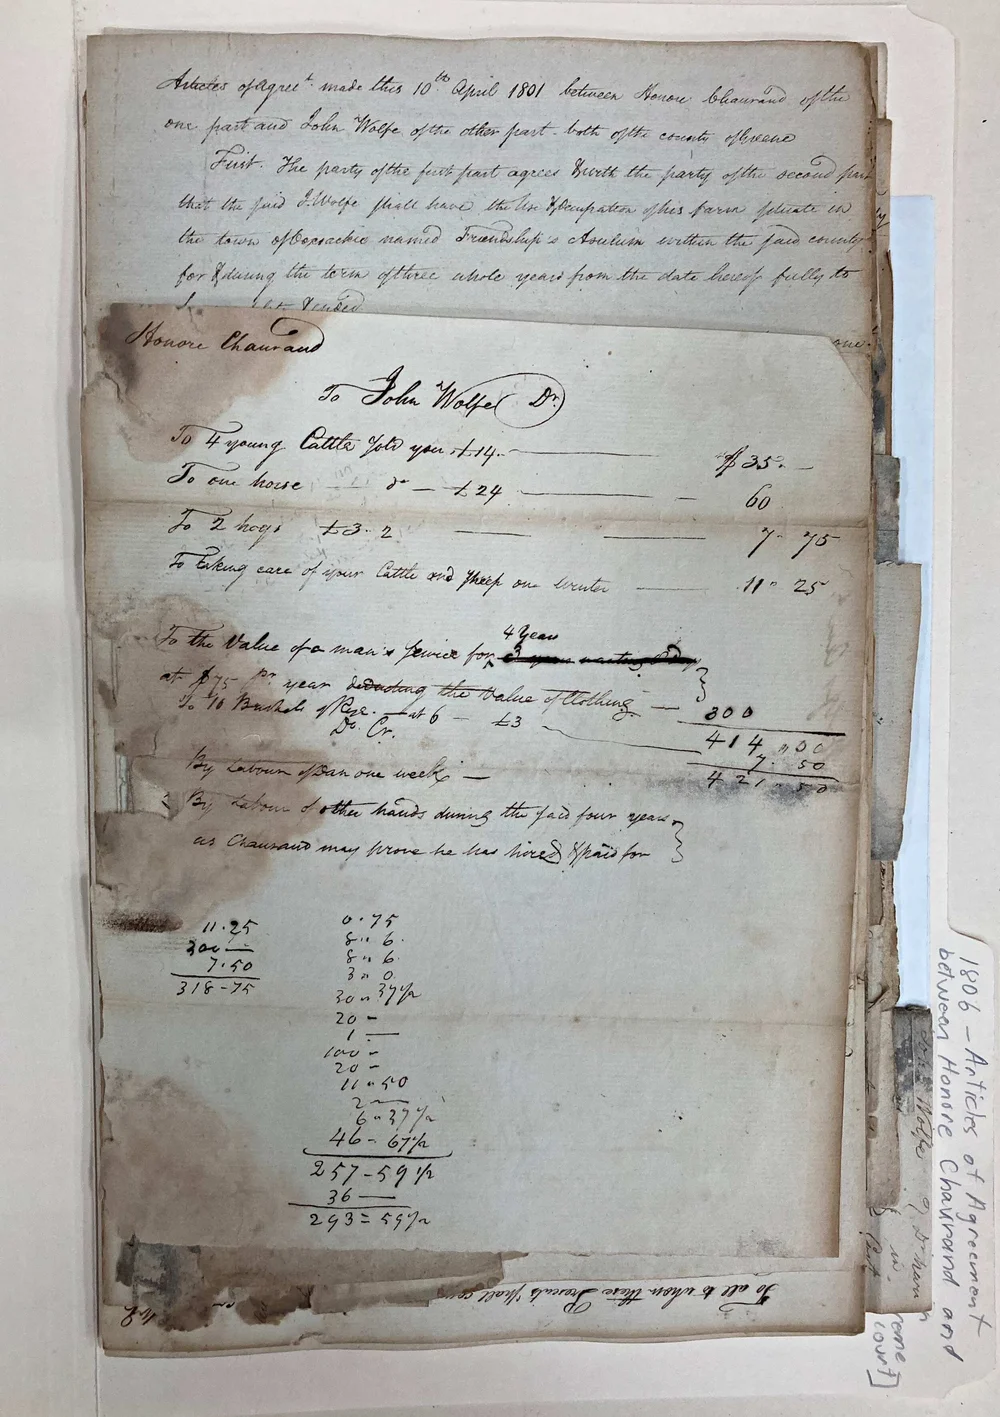 Articles of Agreet. made this 10th April 1801 between Honore Chaurand of the
one part and John Wolfe of the other part both of the county of Greene
First. The party of the first part agrees & with the party of the second part
that the said J. Wolfe shall have the Use & Occupation of his farm situate in
the town of Coxsackie named Friendship's Asulum within the said county
for & during the term of three whole years from the date hereof fully to
& ended
one
Honore Chaurand
To John Wolfe Dr.
To 4 young Cattle sold you £14. $35 . —
To one horse do — £24 — 60
To 2 hogs £3. 2 7. 75
To taking care of your Cattle and sheep one winter 11" 25
4 Years
To the Value of a man's service for 3 years wanting
at $75 pr year deducting the Value of Clothing — 300
To 10 Bushels of Rye. — at 6 — £3
414 "00
Dr. Cr.
7. 50
421. 50
By Labour of Dan one week —
By Labour of other hands during the said four years
as Chaurand may prove he has hired & paid for
11.25
300 —
7.50
318-75
0.75
8" 6.
8" 6.
3" 0.
30" 37½
20 -
1 —
100 -
20 -
11" 50
2 —
6" 37½
46 - 67½
257-59½
36 —
293=59½
To all to whom these Presents shall come
John Wolfe
in
1806 - Articles of Agreement
between Honore Chaurand and
court]